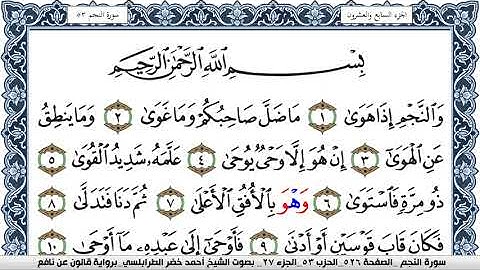 الجزء السابع والعشرون سورة النجم ٥٣
بِسْمِ اللَّهِ الرَّحْمَٰنِ الرَّحِيمِ
وَالنَّجْمِ إِذَا هَوَىٰ ١ مَا ضَلَّ صَاحِبُكُمْ وَمَا غَوَىٰ ٢ وَمَا يَنطِقُ
عَنِ الْهَوَىٰ ٣ إِنْ هُوَ إِلَّا وَحْيٌ يُوحَىٰ ٤ عَلَّمَهُ شَدِيدُ الْقُوَىٰ ٥
ذُو مِرَّةٍ فَاسْتَوَىٰ ٦ وَهْوَ بِالْأُفُقِ الْأَعْلَىٰ ٧ ثُمَّ دَنَا فَتَدَلَّىٰ ٨
فَكَانَ قَابَ قَوْسَيْنِ أَوْ أَدْنَىٰ ٩ فَأَوْحَىٰ إِلَىٰ عَبْدِهِ مَا أَوْحَىٰ ١٠
سورة النجم _الصفحة ٥٢٦_ الحزب ٥٣_ الجزء ٢٧_ بصوت الشيخ أحمد خضر الطرابلسي_ برواية قالون عن نافع